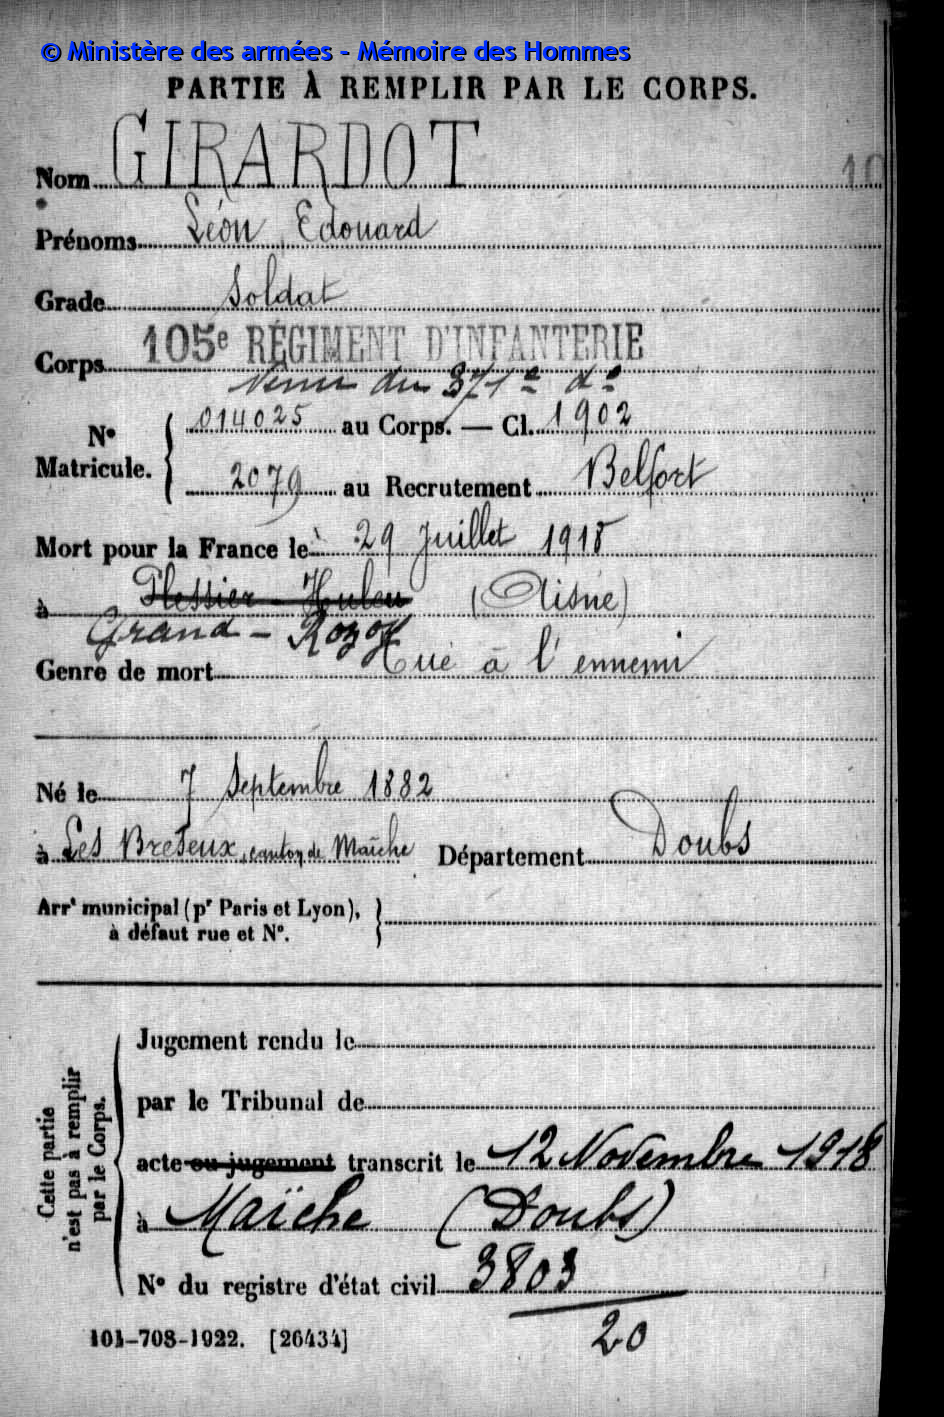 © Ministère des armées - Mémoire des Hommes
PARTIE À REMPLIR PAR LE CORPS.
Nom GIRARDOT 10
Prénoms Léon, Edouard
Grade Soldat
Corps 105e RÉGIMENT D'INFANTERIE
Venu du 371e do
No Matricule. 014025 au Corps. — Cl. 1902
2079 au Recrutement Belfort
Mort pour la France le 29 Juillet 1918
à Plessier-Huleu (Aisne)
Grand-Rozoy
Genre de mort Tué à l'ennemi
Né le 7 Septembre 1882
à Les Breseux, canton de Maîche Département Doubs
Arrt municipal (pr Paris et Lyon),
à défaut rue et No.
Cette partie
n'est pas à remplir
par le Corps.
Jugement rendu le
par le Tribunal de
acte ou jugement transcrit le 12 Novembre 1918
à Maïche (Doubs)
No du registre d'état civil 3803
20
101-708-1922. [26434]